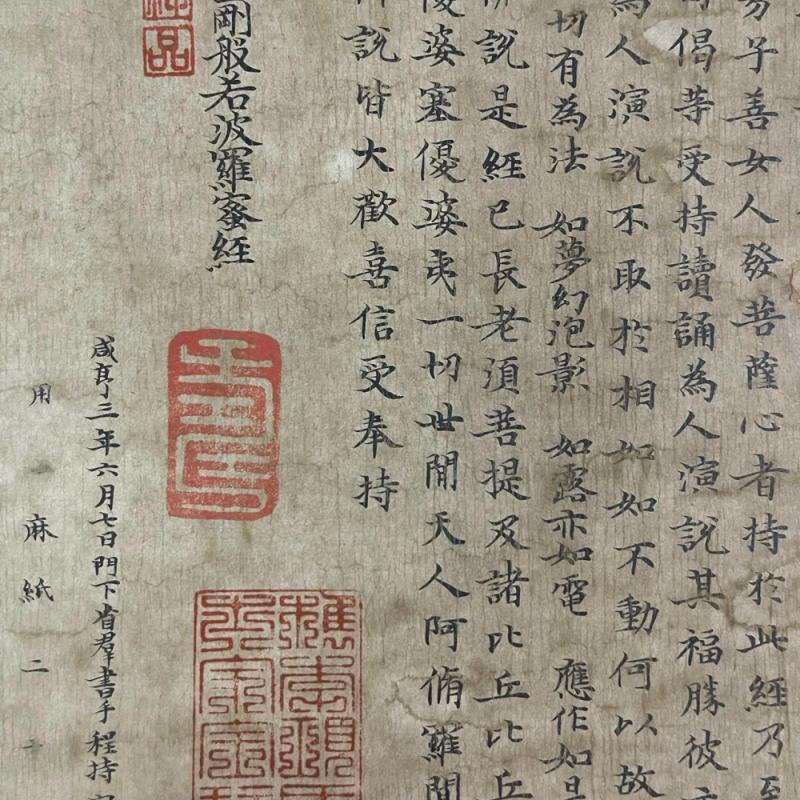 男子善女人發菩薩心者持於此經乃至
句偈等受持讀誦為人演說其福勝彼
為人演說不取於相如如不動何以故
切有為法 如夢幻泡影 如露亦如電 應作如是
佛說是經已長老須菩提及諸比丘比丘
優婆塞優婆夷一切世間天人阿脩羅聞
所說皆大歡喜信受奉持
剛般若波羅蜜經
品
咸亨三年六月七日門下省群書手程持
用麻紙二